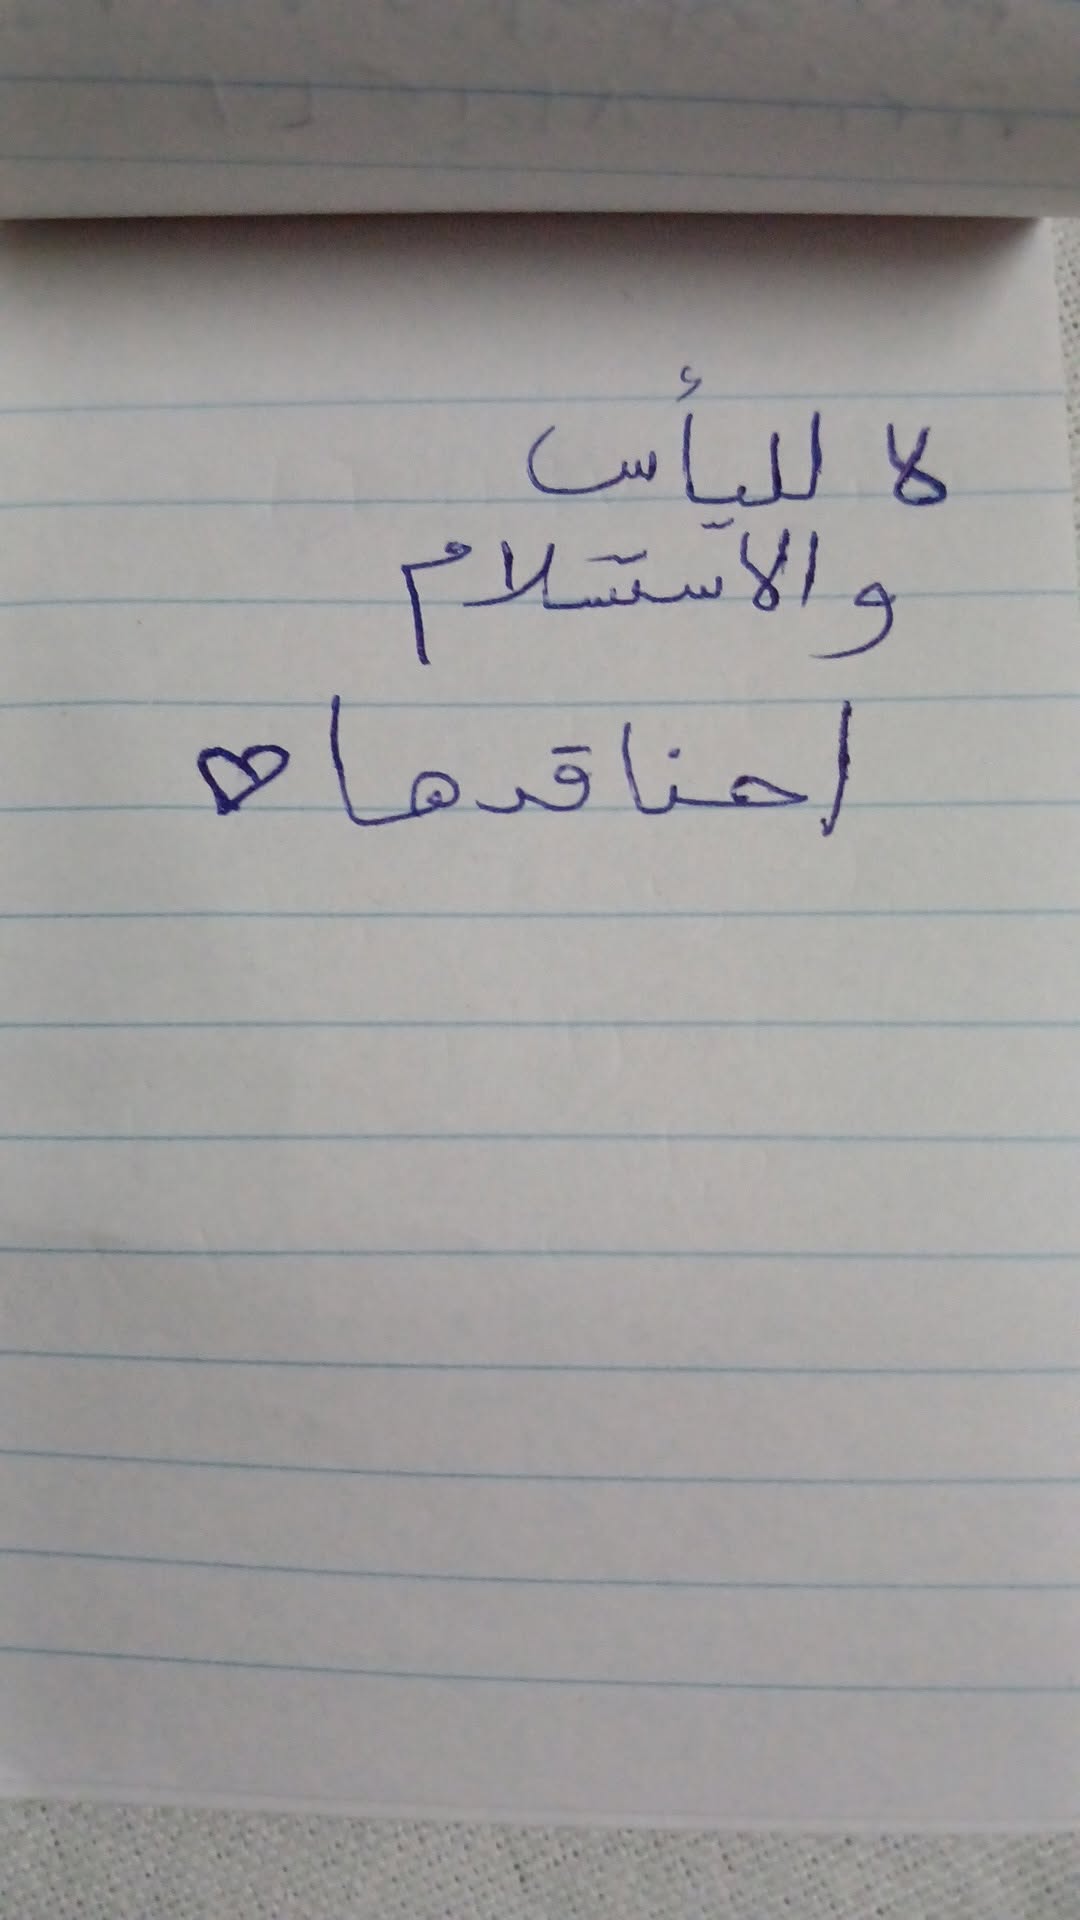 لا لليأس
والاستسلام
إحنا قدها ♡